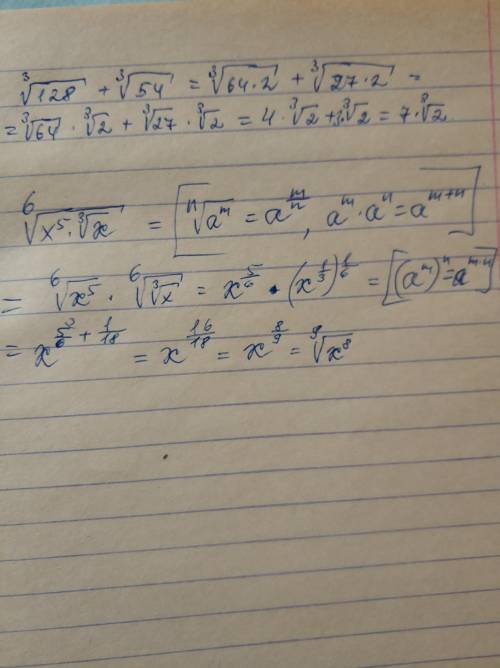 ∛128 + ∛54 = ∛(64·2) + ∛(27·2) =
= ∛64 · ∛2 + ∛27 · ∛2 = 4·∛2 + 3∛2 = 7·∛2
⁶√(x⁵·∛x) = [ⁿ√(aᵐ) = a^(m/n), aᵐ·aⁿ = a^(m+n)]
= ⁶√(x⁵) · ⁶√(∛x) = x^(5/6) · (x^(1/3))^(1/6) = [(aᵐ)ⁿ = a^(m·n)]
= x^(5/6 + 1/18) = x^(16/18) = x^(8/9) = ⁹√(x⁸)